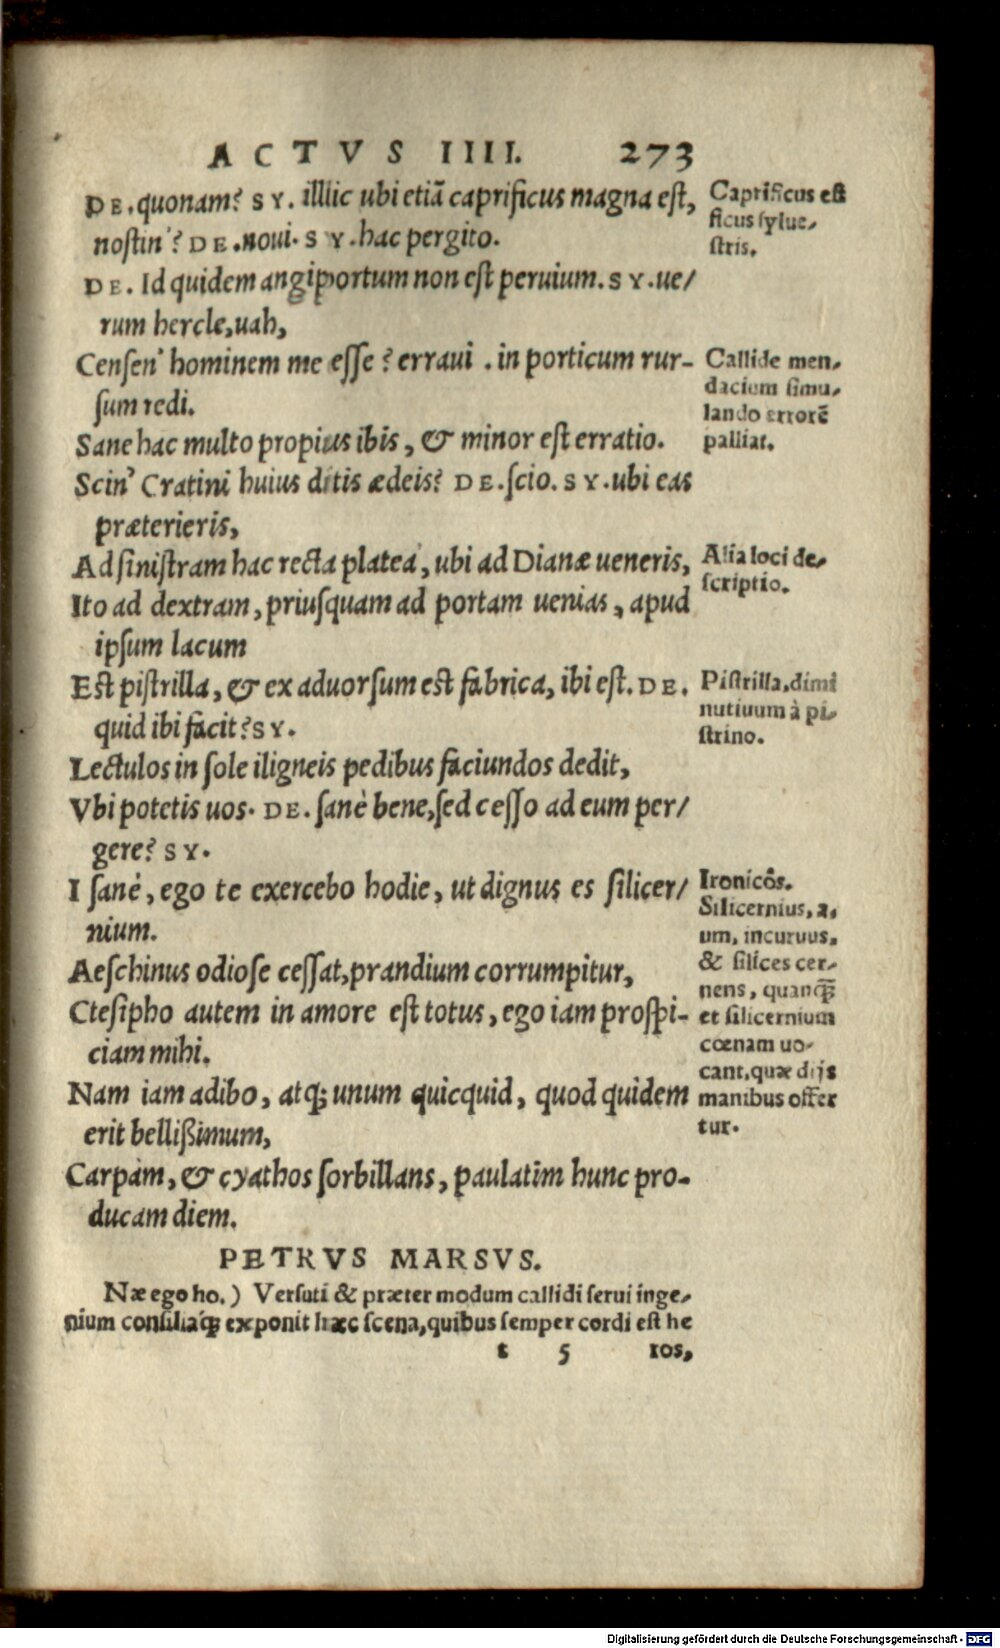 ACTVS IIII. 273
DE. quonam? SY. illlic ubi etiã caprificus magna eſt,
noſtin'? DE. noui. SY. hac pergito.
DE. Id quidem angiportum non eſt peruium. SY. ue/
rum hercle, uah,
Cenſen' hominem me eſſe? erraui. in porticum rur-
ſum redi.
Sane hac multo propius ibis, & minor eſt erratio.
Scin' Cratini huius ditis ædeis? DE. ſcio. SY. ubi eas
præterieris,
Ad ſiniſtram hac recta platea, ubi ad Dianæ ueneris,
Ito ad dextram, priuſquam ad portam uenias, apud
ipſum lacum
Eſt piſtrilla, & ex aduorſum eſt fabrica, ibi eſt. DE.
quid ibi facit? SY.
Lectulos in ſole iligneis pedibus faciundos dedit,
Vbi potetis uos. DE. ſanè bene, ſed ceſſo ad eum per/
gere? SY.
I ſanè, ego te exercebo hodie, ut dignus es ſilicer/
nium.
Aeſchinus odioſe ceſſat, prandium corrumpitur,
Cteſipho autem in amore eſt totus, ego iam proſpi-
ciam mihi.
Nam iam adibo, atq; unum quicquid, quod quidem
erit bellißimum,
Carpàm, & cyathos ſorbillans, paulatim hunc pro-
ducam diem.
Caprificus eſt
ficus ſylue-
ſtris.
Callide men-
dacium ſimu-
lando errorẽ
palliat.
Alia loci de-
ſcriptio.
Piſtrilla, dimi
nutiuum à pi-
ſtrino.
Ironicôs.
Silicernius, a,
um, incuruus,
& ſilices cer-
nens, quanq̃
et ſilicernium
cœnam uo-
cant, quæ dijs
manibus offer
tur.
PETRVS MARSVS.
Næ ego ho.) Verſuti & præter modum callidi ſerui inge-
nium conſiliaq́; exponit hæc ſcena, quibus ſemper cordi eſt he
t 5 ros,
Digitalisierung gefördert durch die Deutsche Forschungsgemeinschaft - DFG